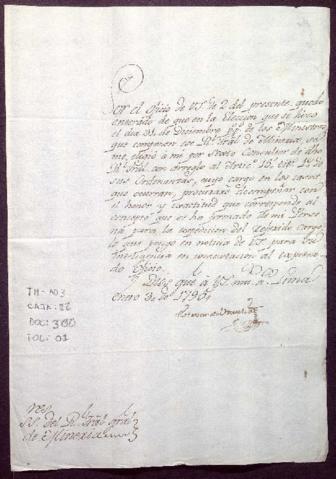 Por el Oficio de VS. de 2 del presente quedo
enterado de que en la Eleccion que se hizo
el dia 31 de Diciembre pp.º de los Ministros
que componen ese Rl. Tral. de Mineria,
eligió a mi por Consultor de dho
Trâl. con arreglo al Titº 15 de
sus Ordenanzas, cuyo cargo en los casos
que ocurran, procuraré desempeñar con
el honor y exactitud que corresponde al
concepto que se ha formado de mi Perso
na para la del referido cargo
lo que pongo en noticia de VS. para su
inteligencia en contestacion al
do Oficio.
Dios gue. a VS. ms. as. Lima
enero 3, de 1796,
TM-AD3
CAJA: 22
DOC: 300
FOL: 01
SS. del Rl. Tral. Gral.
de Mineria